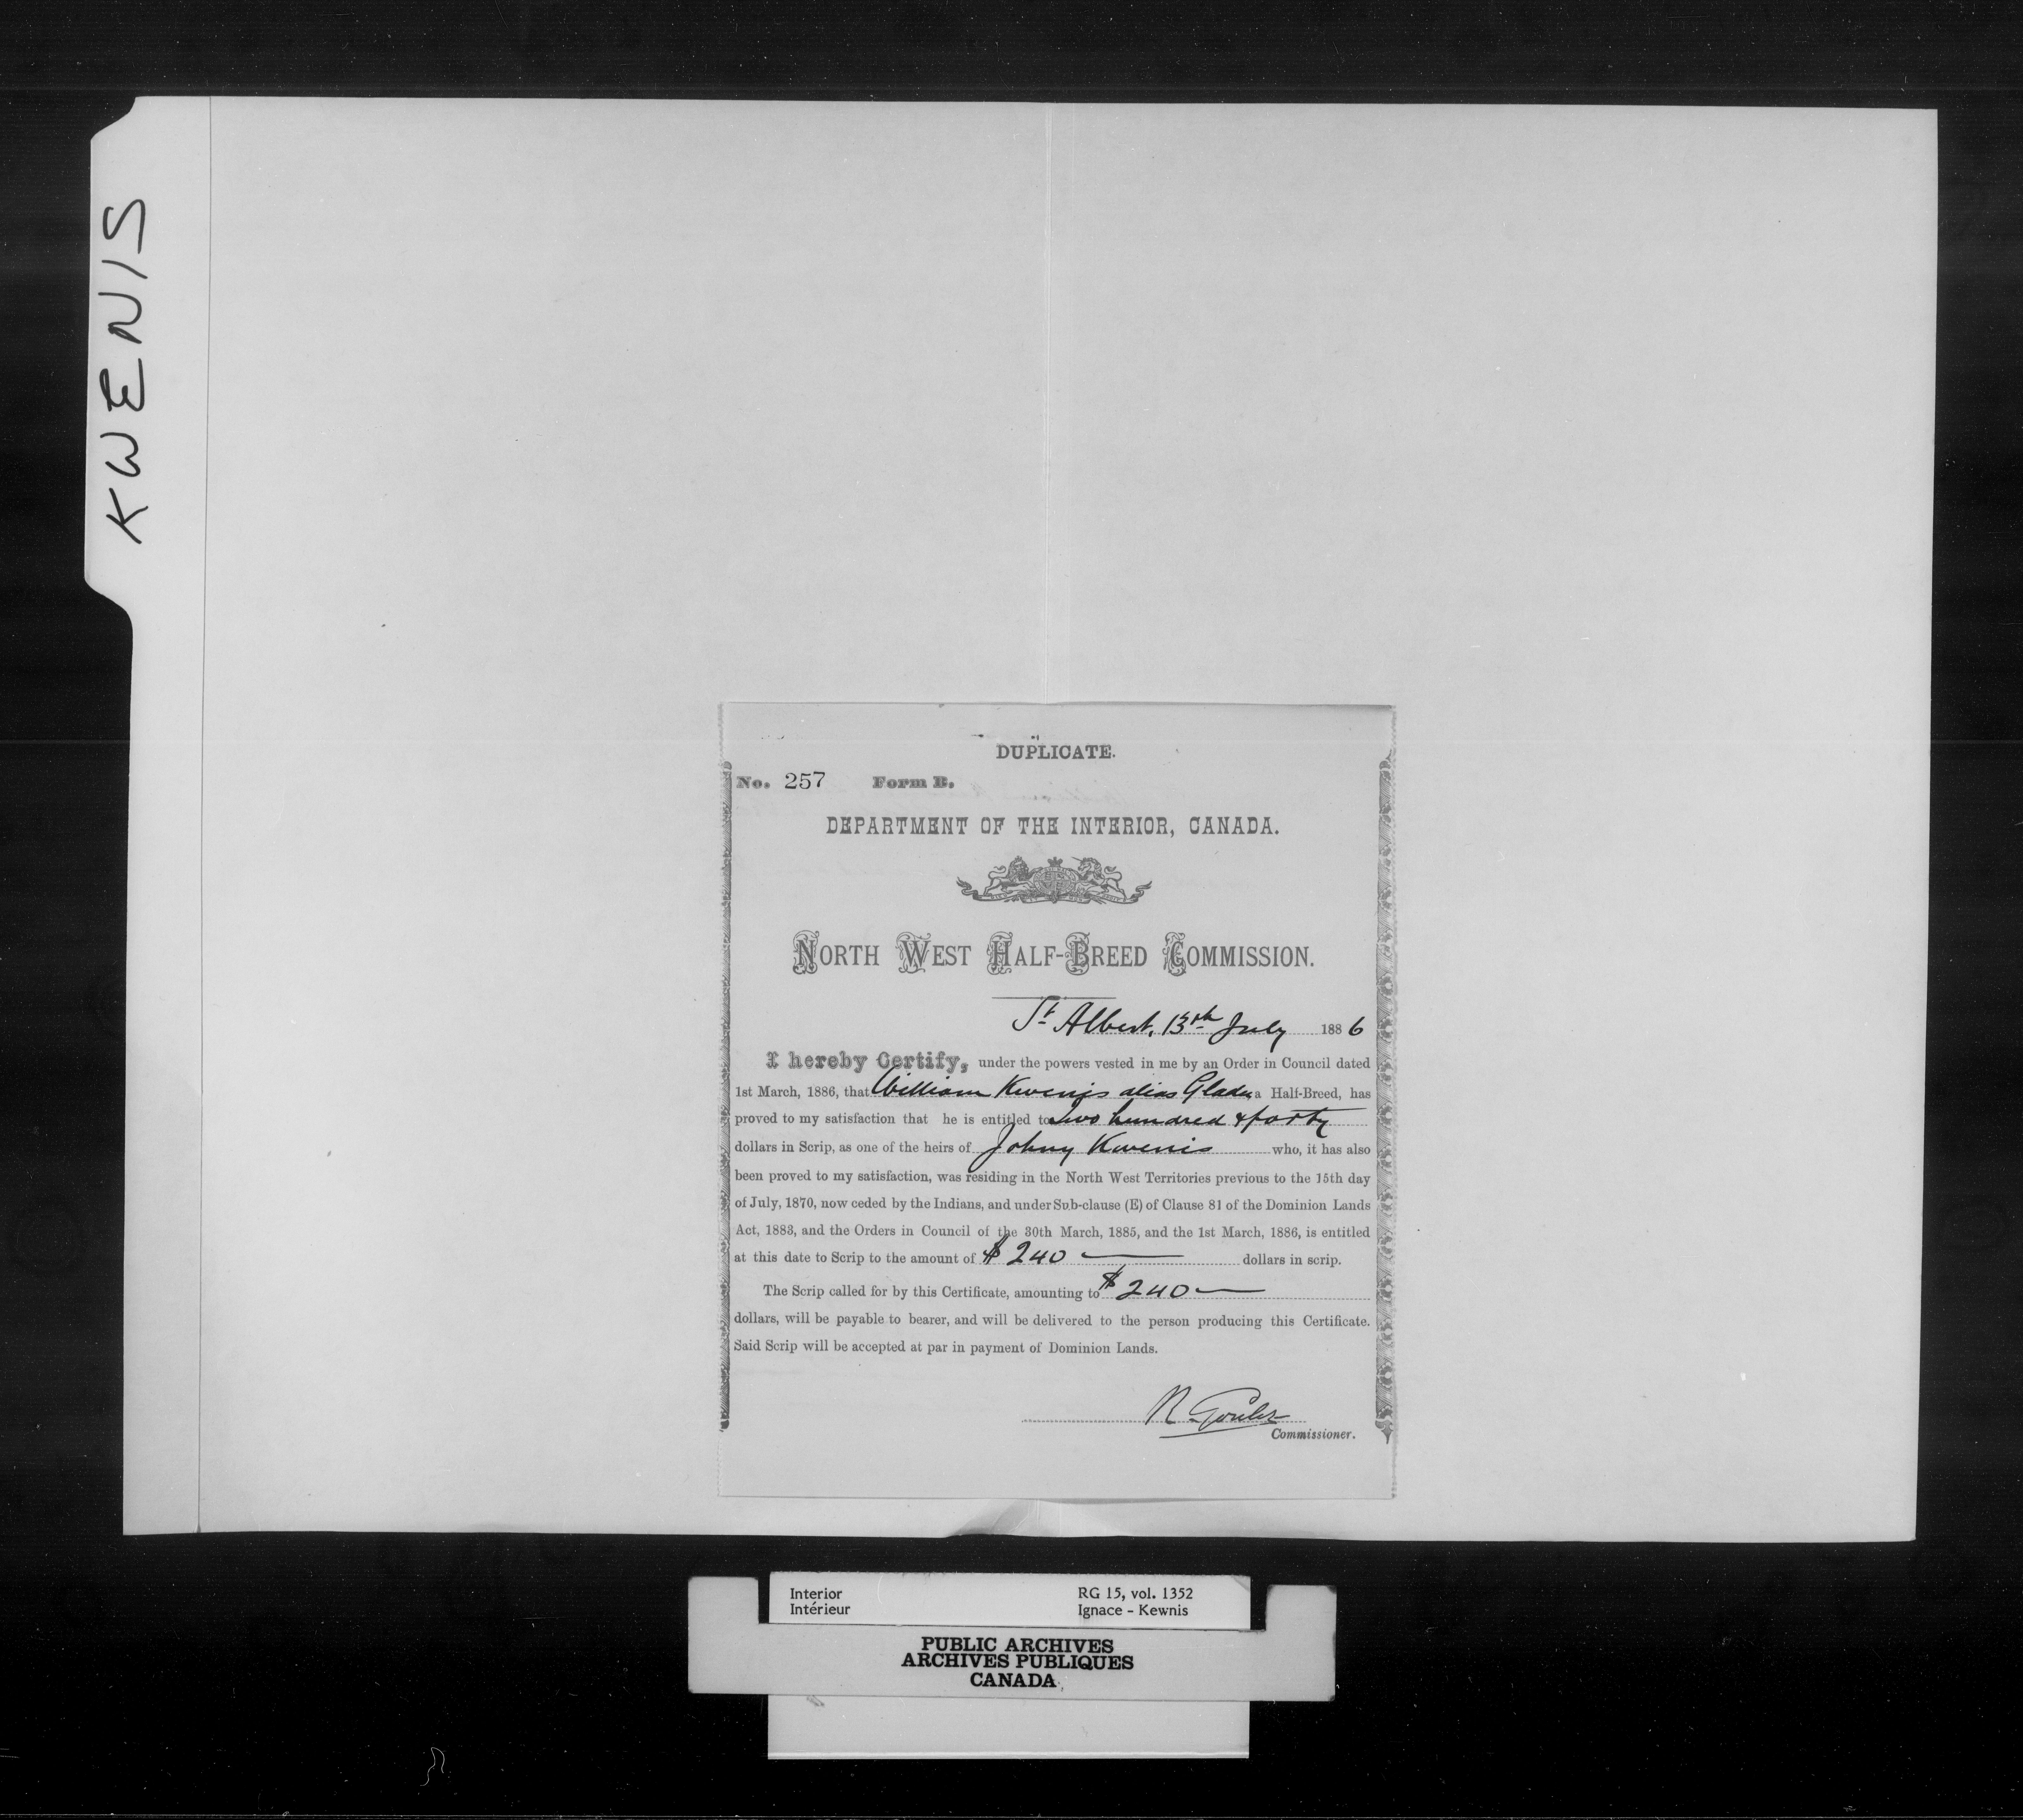 KWENIS
DUPLICATE.
No. 257 Form B.
DEPARTMENT OF THE INTERIOR, CANADA.
NORTH WEST HALF-BREED COMMISSION.
St Albert, 13th July 1886
I hereby Certify, under the powers vested in me by an Order in Council dated
1st March, 1886, that William Kwenis alias Gladu, a Half-Breed, has
proved to my satisfaction that he is entitled to Two hundred & forty
dollars in Scrip, as one of the heirs of Johny Kwenis who, it has also
been proved to my satisfaction, was residing in the North West Territories previous to the 15th day
of July, 1870, now ceded by the Indians, and under Sub-clause (E) of Clause 81 of the Dominion Lands
Act, 1883, and the Orders in Council of the 30th March, 1885, and the 1st March, 1886, is entitled
at this date to Scrip to the amount of $240 dollars in scrip.
The Scrip called for by this Certificate, amounting to $240
dollars, will be payable to bearer, and will be delivered to the person producing this Certificate.
Said Scrip will be accepted at par in payment of Dominion Lands.
R Goulet
Commissioner.
Interior RG 15, vol. 1352
Intérieur Ignace – Kewnis
PUBLIC ARCHIVES
ARCHIVES PUBLIQUES
CANADA